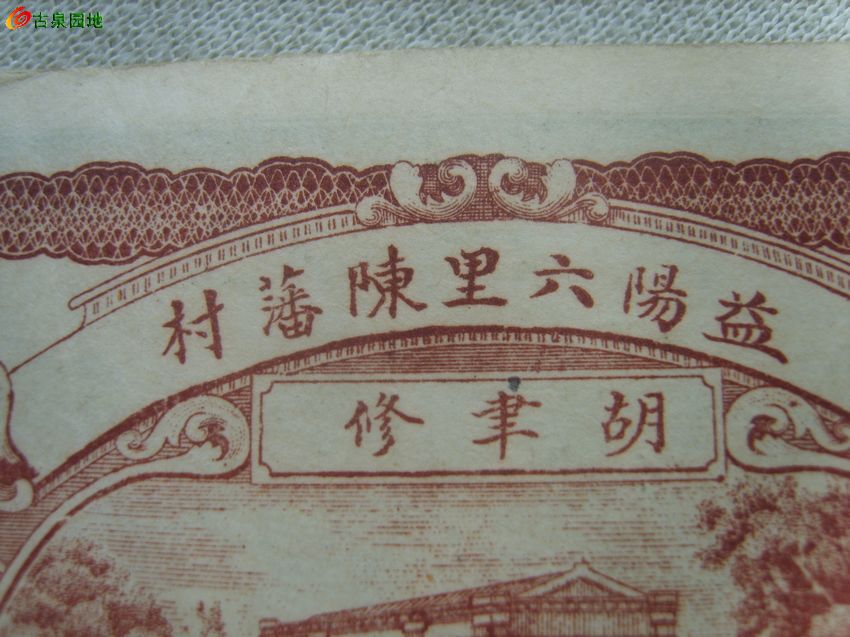 古泉园地
益陽六里陳藩村
胡聿修